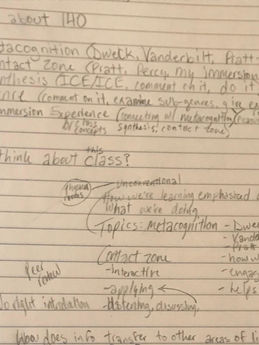 about 140
tacognition (Dweck, Vanderbilt, Pratt
ntact zone (Pratt, Percy, my Immersion
nthesis (ICE/ICE, comment on it, do it
ence (comment on it, examine sub-genres, give ex
mmersion Experience (connecting w/ metacognition
concepts synthesis, contact zone)
think about this class?
unconventional
How we're learning emphasized
what we're doing
Topics: metacognition - Dwec
- Vand
- Pratt
Contact zone - how w
- Interactive - engag
- applying - helps
Peer review
No right - listening, discussing,
How does info transfer to other areas of li